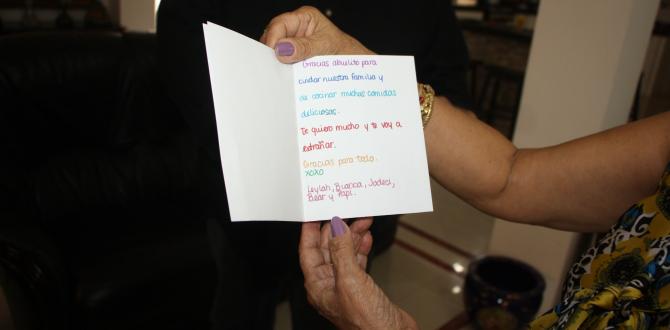 Gracias abuelito para
cuidar nuestra familia y
de cocinar muchas comidas
deliciosas.
Te quiero mucho y te voy a
extrañar.
Gracias para todo.
xoxo
Leylah, Bianca, Jodeci,
Bear y Papi.